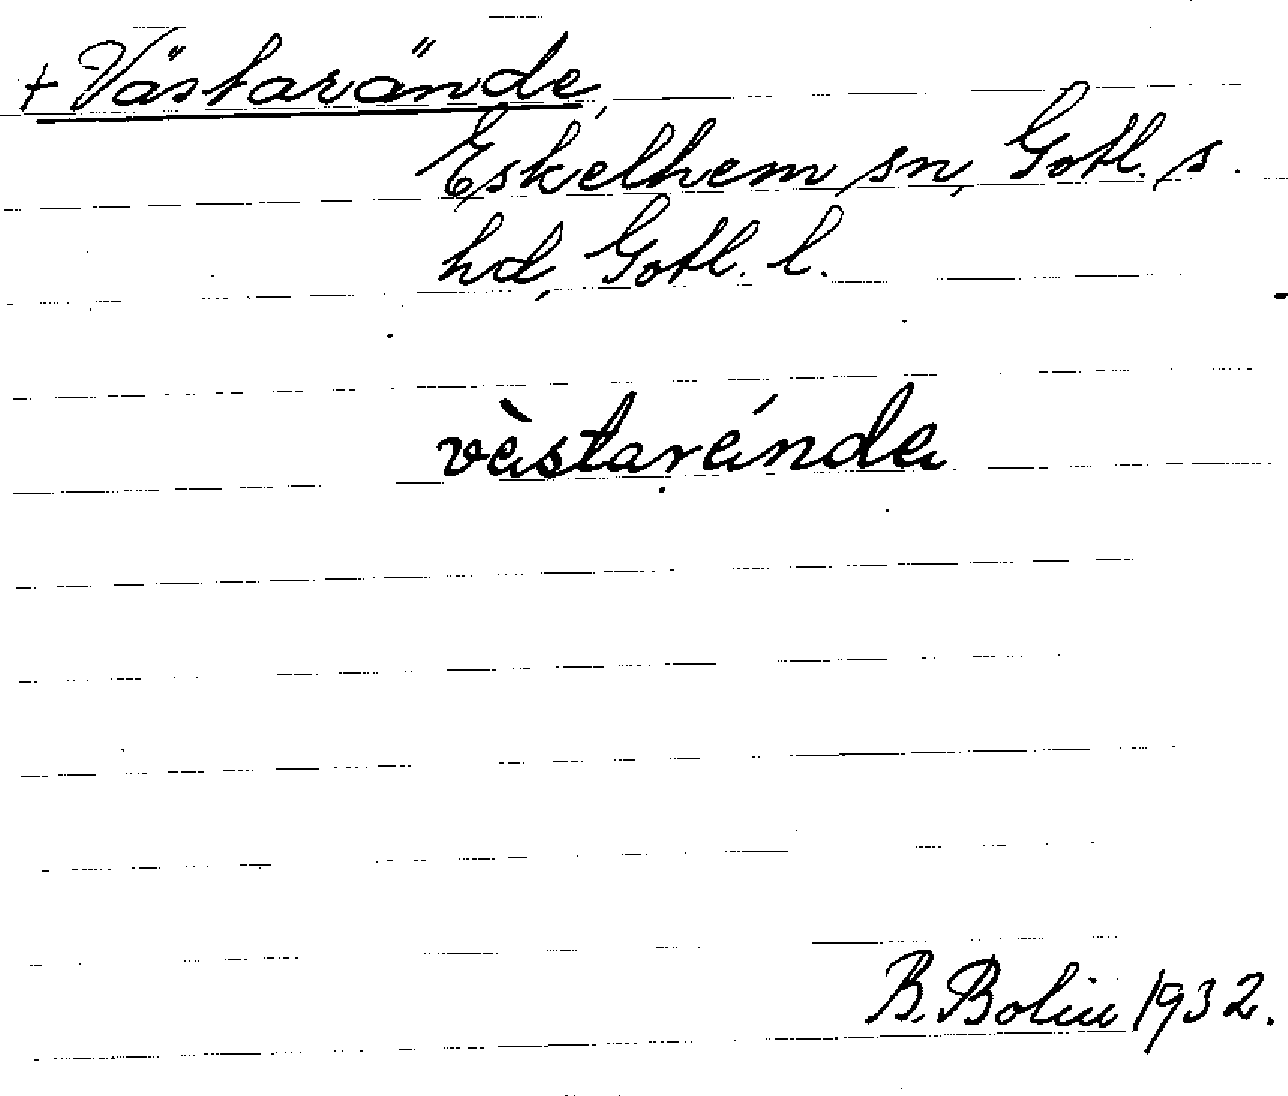 + Västarände,
Eskelhem sn, Gotl. s.
hd, Gotl. l.
västaränden
B. Bolin 1932.